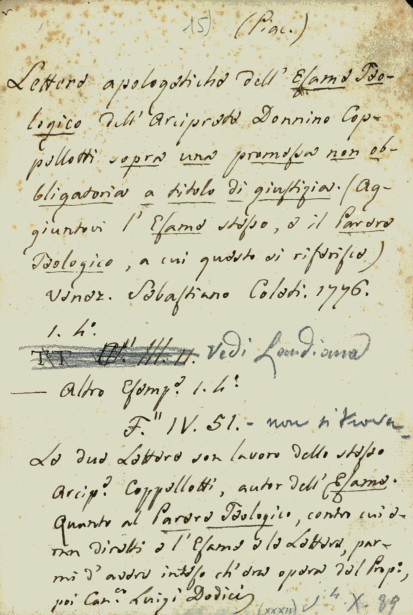 15) (Piac.)
Lettere apologetiche dell' Esame Teo-
logico dell' Arciprete Donnino Cop-
pellotti sopra una promessa non ob-
bligatoria a titolo di giustizia. (Ag-
giuntovi l' Esame stesso, e il Parere
Teologico, a cui questo si riferisce.)
Venez. Sebastiano Coleti. 1776.
1. 4º.
Vedi Landiana
— Altro Esempº. 1. 4º.
F" IV. 51. - non si trova -
Le due Lettere son lavoro dello stesso
Arcipº. Coppellotti, autor dell' Esame.
Quanto al Parere Teologico, contro cui e-
ran diretti e l' Esame e le Lettere, par-
mi d' avere inteso ch' era opera del Propº,
poi Canº Luigi Dodici
(XXXII)